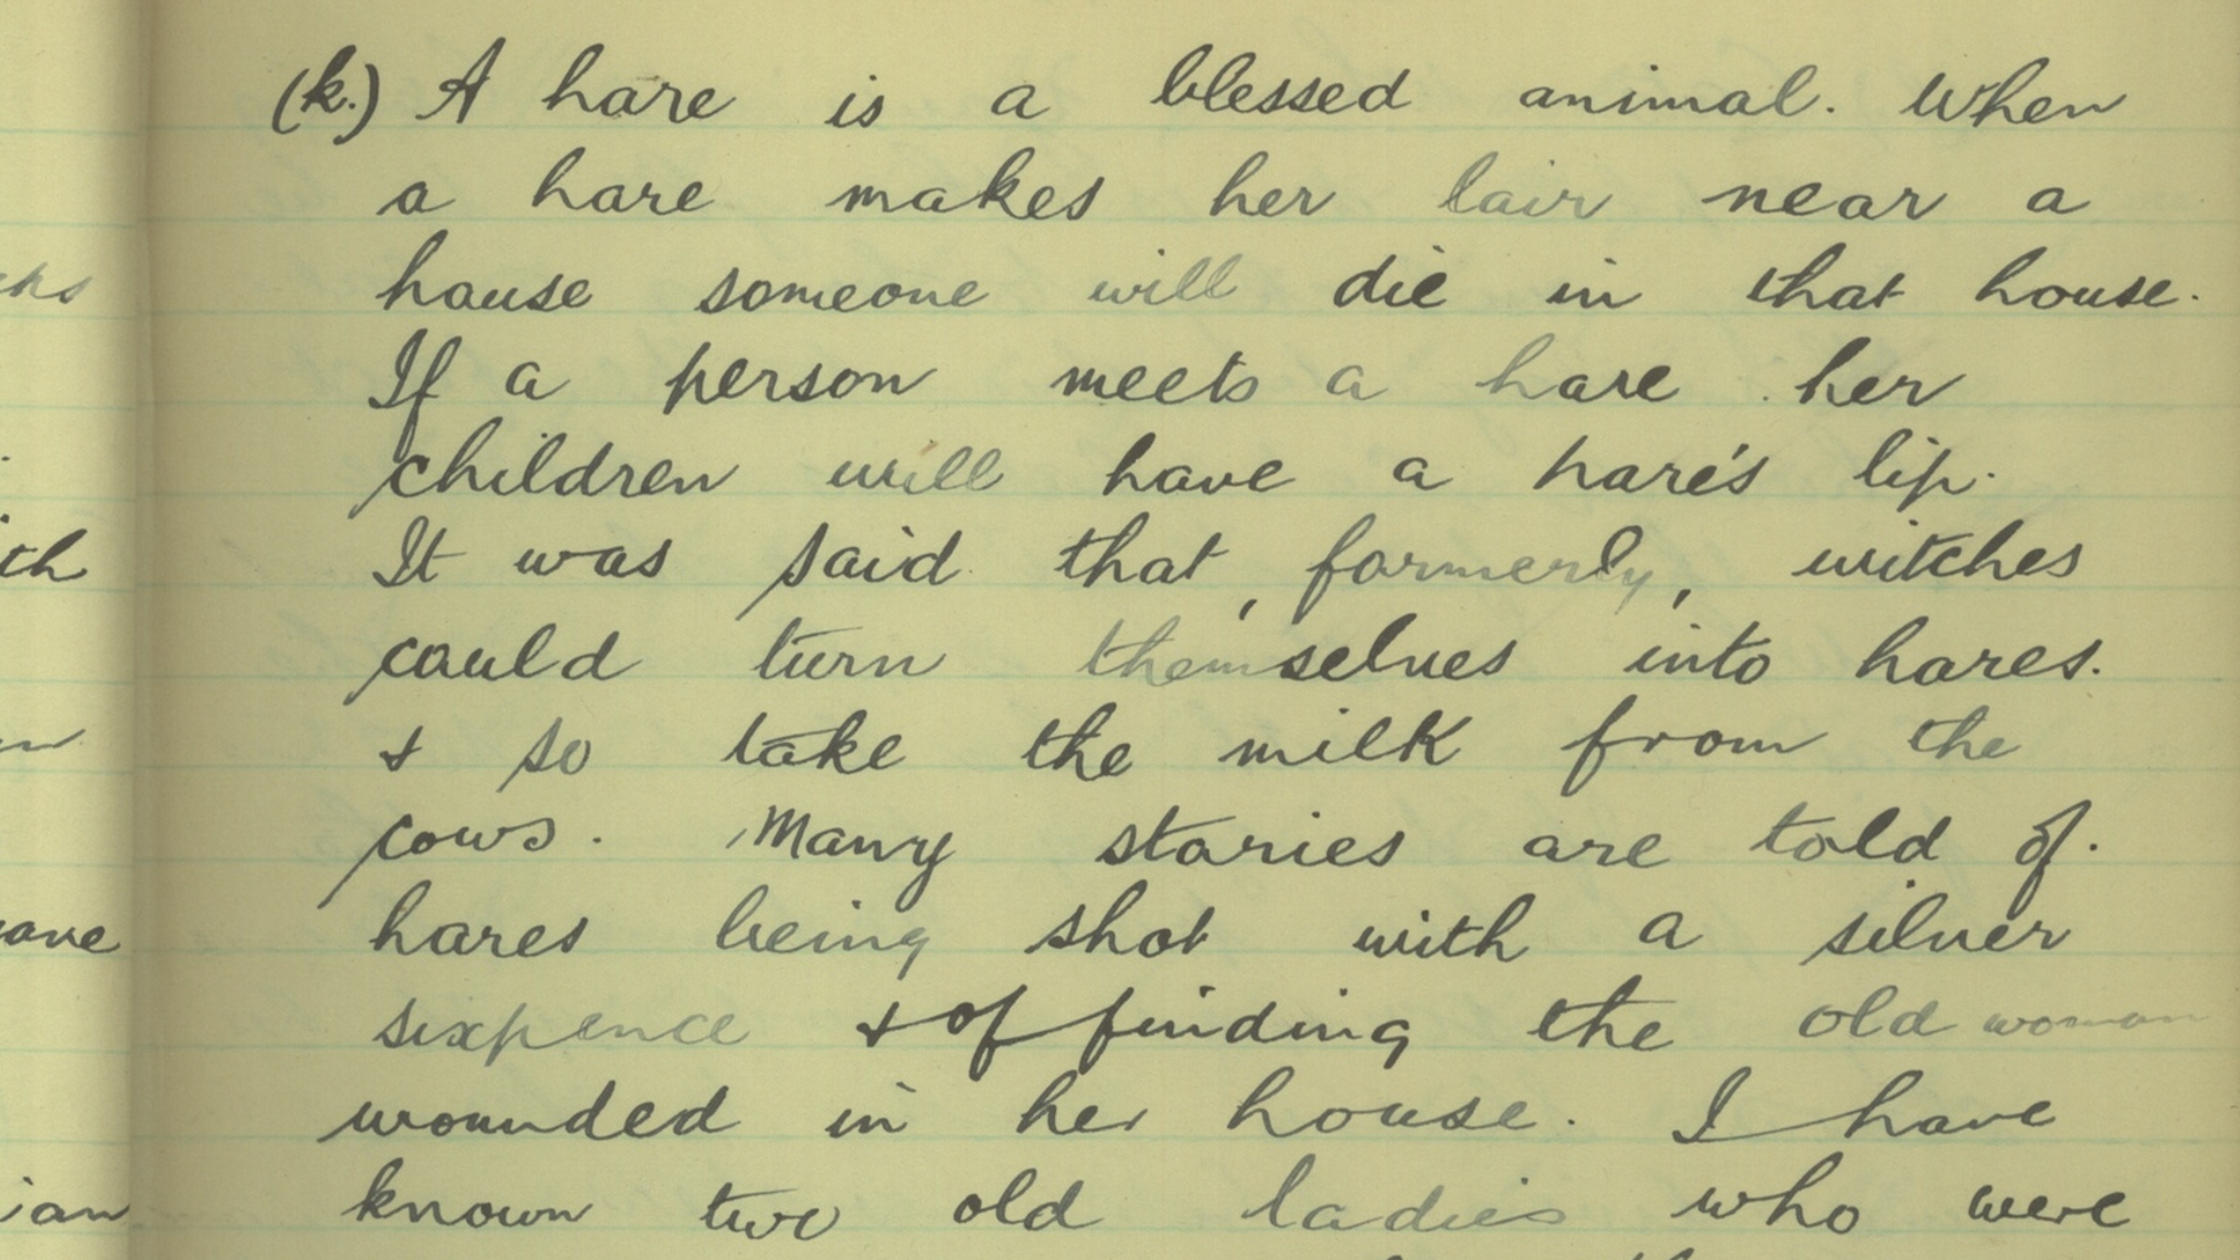 (k.) A hare is a blessed animal. When
a hare makes her lair near a
house someone will die in that house.
If a person meets a hare her
children will have a hare's lip.
It was said that, formerly, witches
could turn themselves into hares.
& so take the milk from the
cows. Many stories are told of.
hares being shot with a silver
sixpence & of finding the old woman
wounded in her house. I have
known two old ladies who were